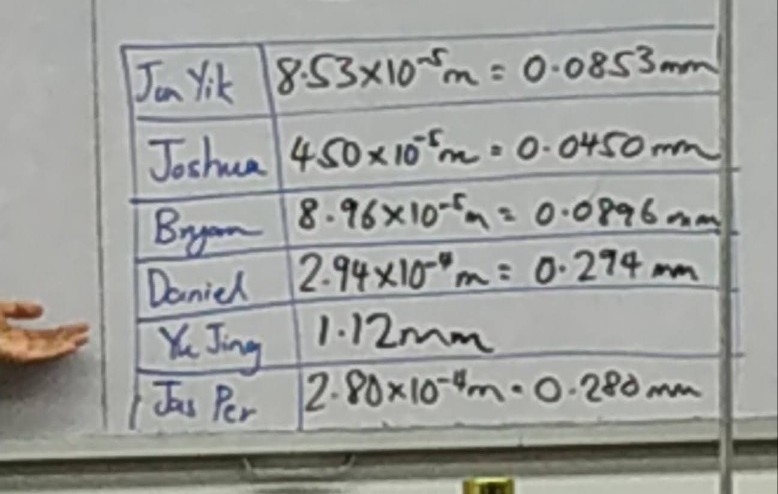 Jun Yik 8.53×10⁻⁵m = 0.0853mm
Joshua 4.50×10⁻⁵m = 0.0450mm
Bryan 8.96×10⁻⁵m = 0.0896mm
Daniel 2.94×10⁻⁴m = 0.294mm
Yu Jing 1.12mm
Jas Per 2.80×10⁻⁴m = 0.280mm